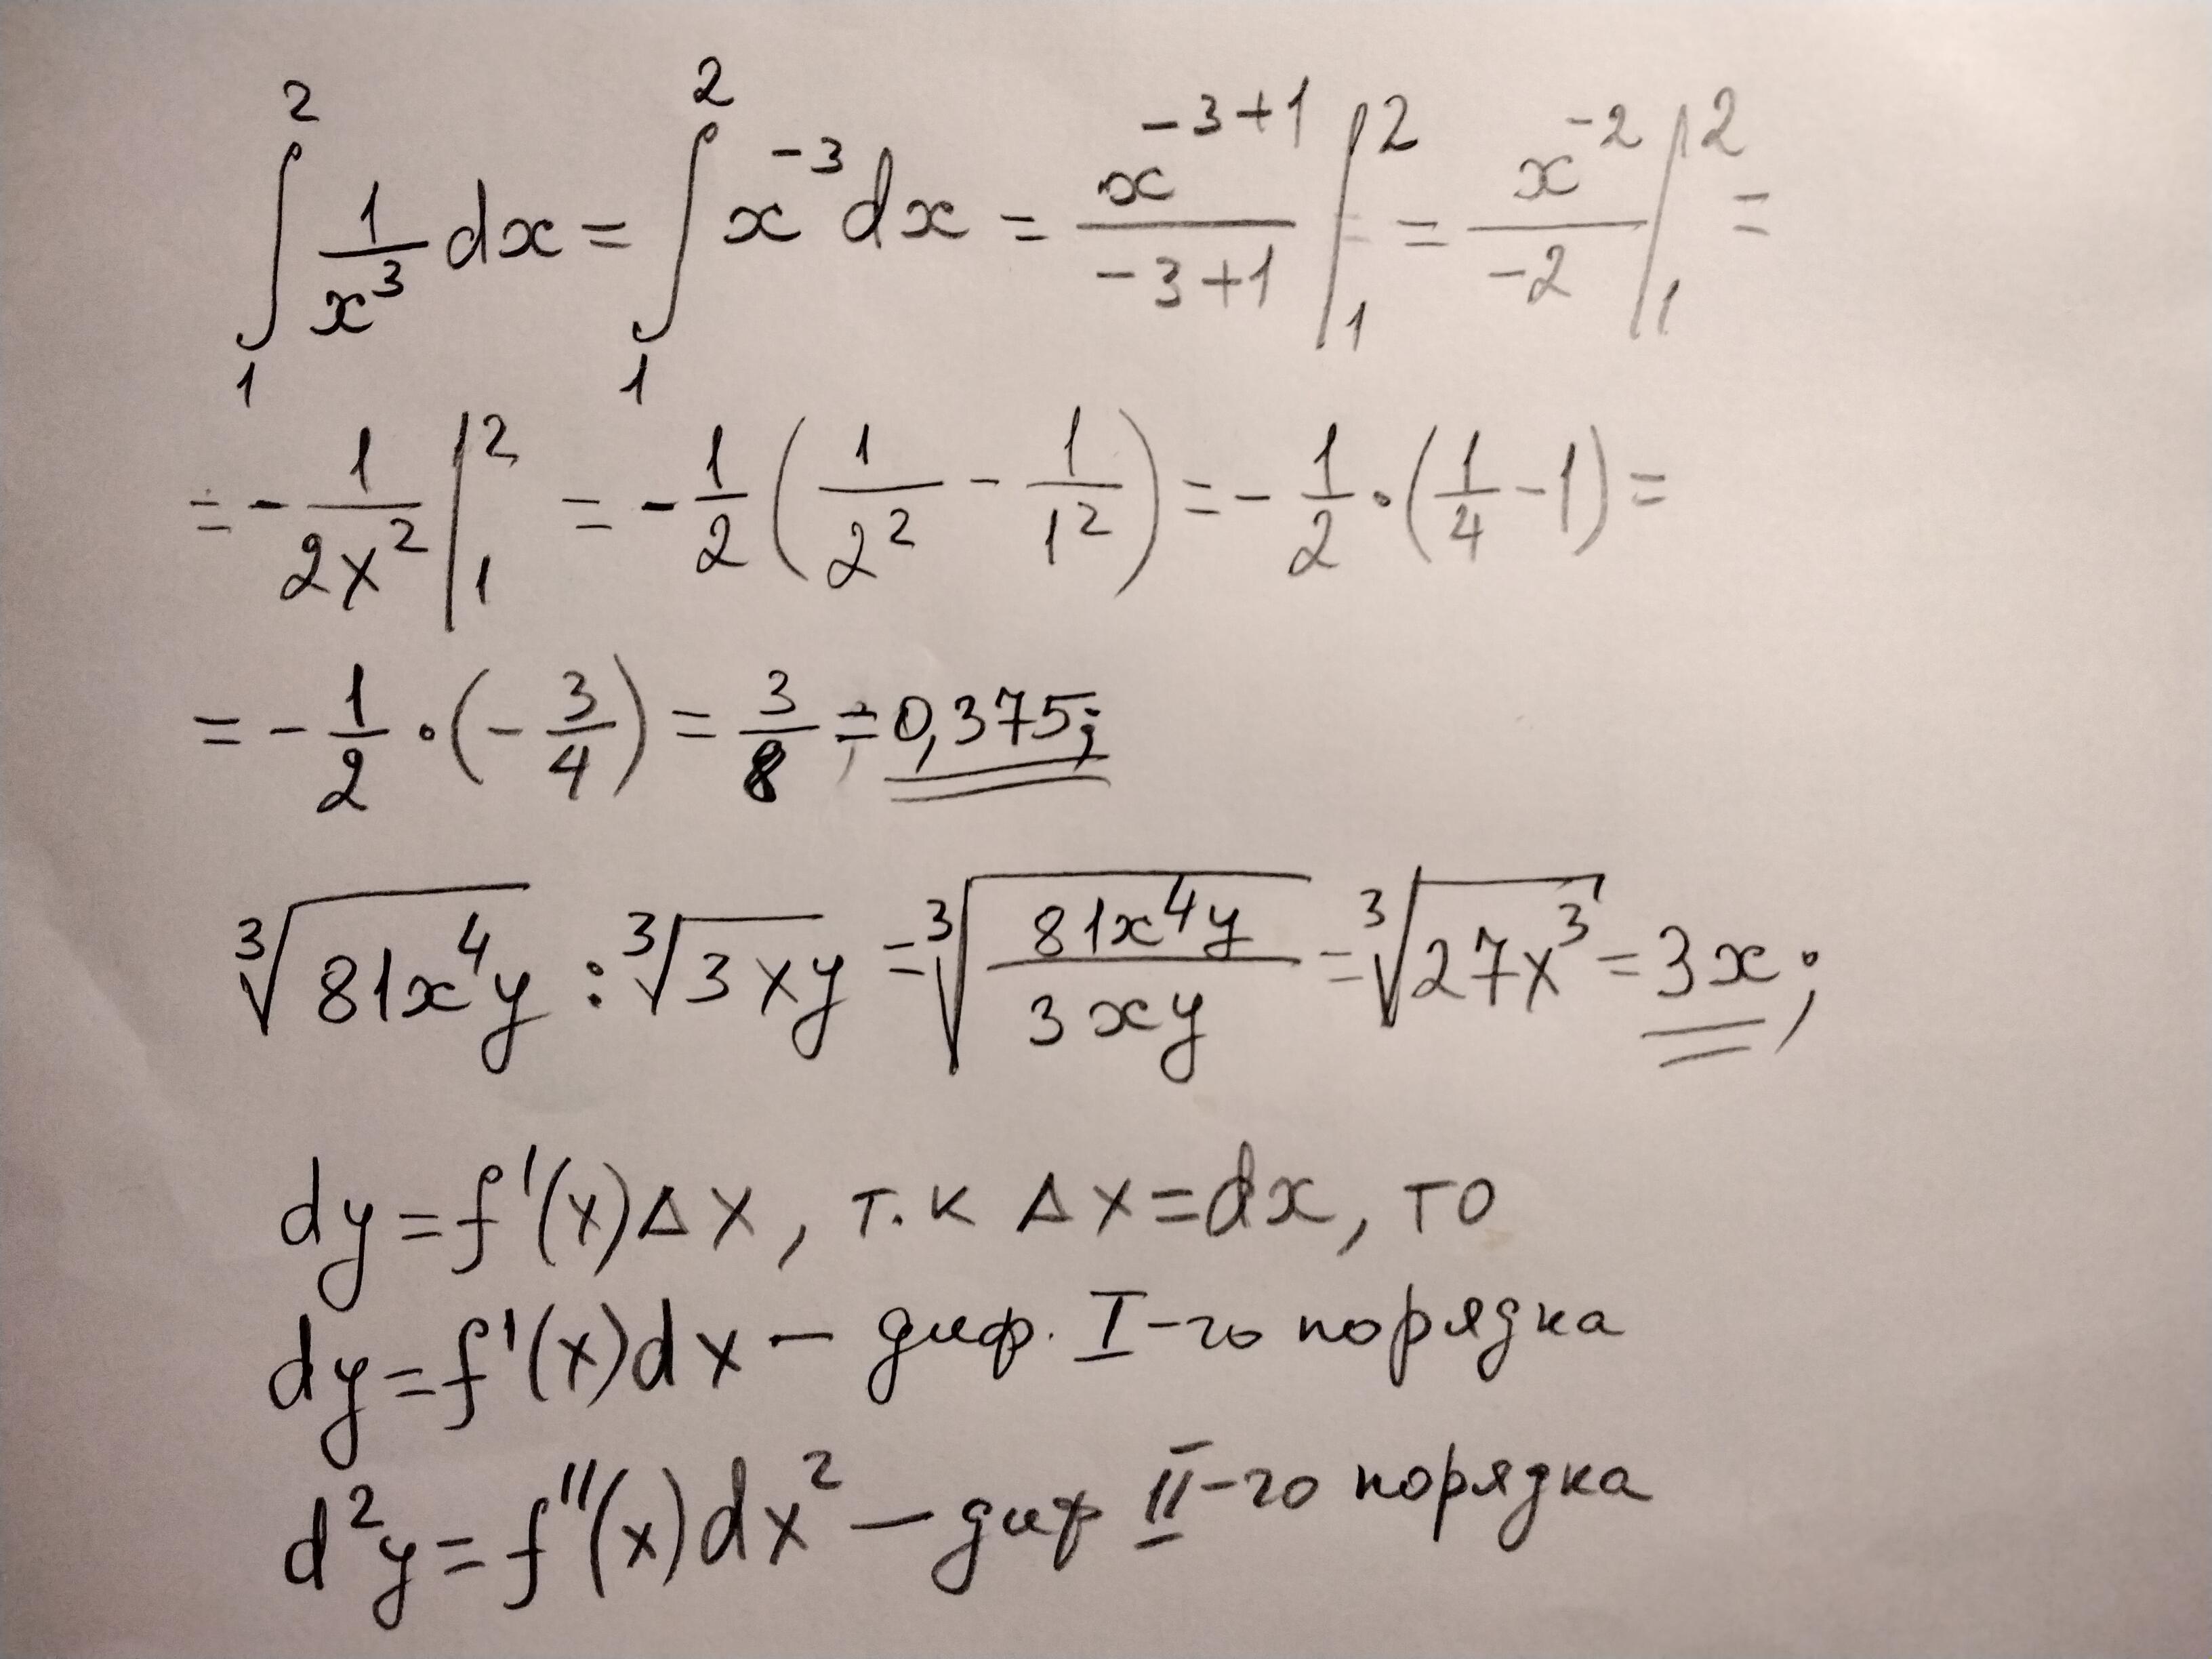 ∫₁² 1/x³ dx = ∫₁² x⁻³ dx = x⁻³⁺¹/(-3+1) |₁² = x⁻²/(-2) |₁² =
= - 1/(2x²) |₁² = - 1/2 (1/2² - 1/1²) = - 1/2 · (1/4 - 1) =
= - 1/2 · (- 3/4) = 3/8 = 0,375;
∛(81x⁴y) : ∛(3xy) = ∛(81x⁴y/(3xy)) = ∛(27x³) = 3x;
dy = f'(x)Δx, т.к Δx = dx, то
dy = f'(x)dx — диф. I-го порядка
d²y = f''(x)dx² — диф II-го порядка